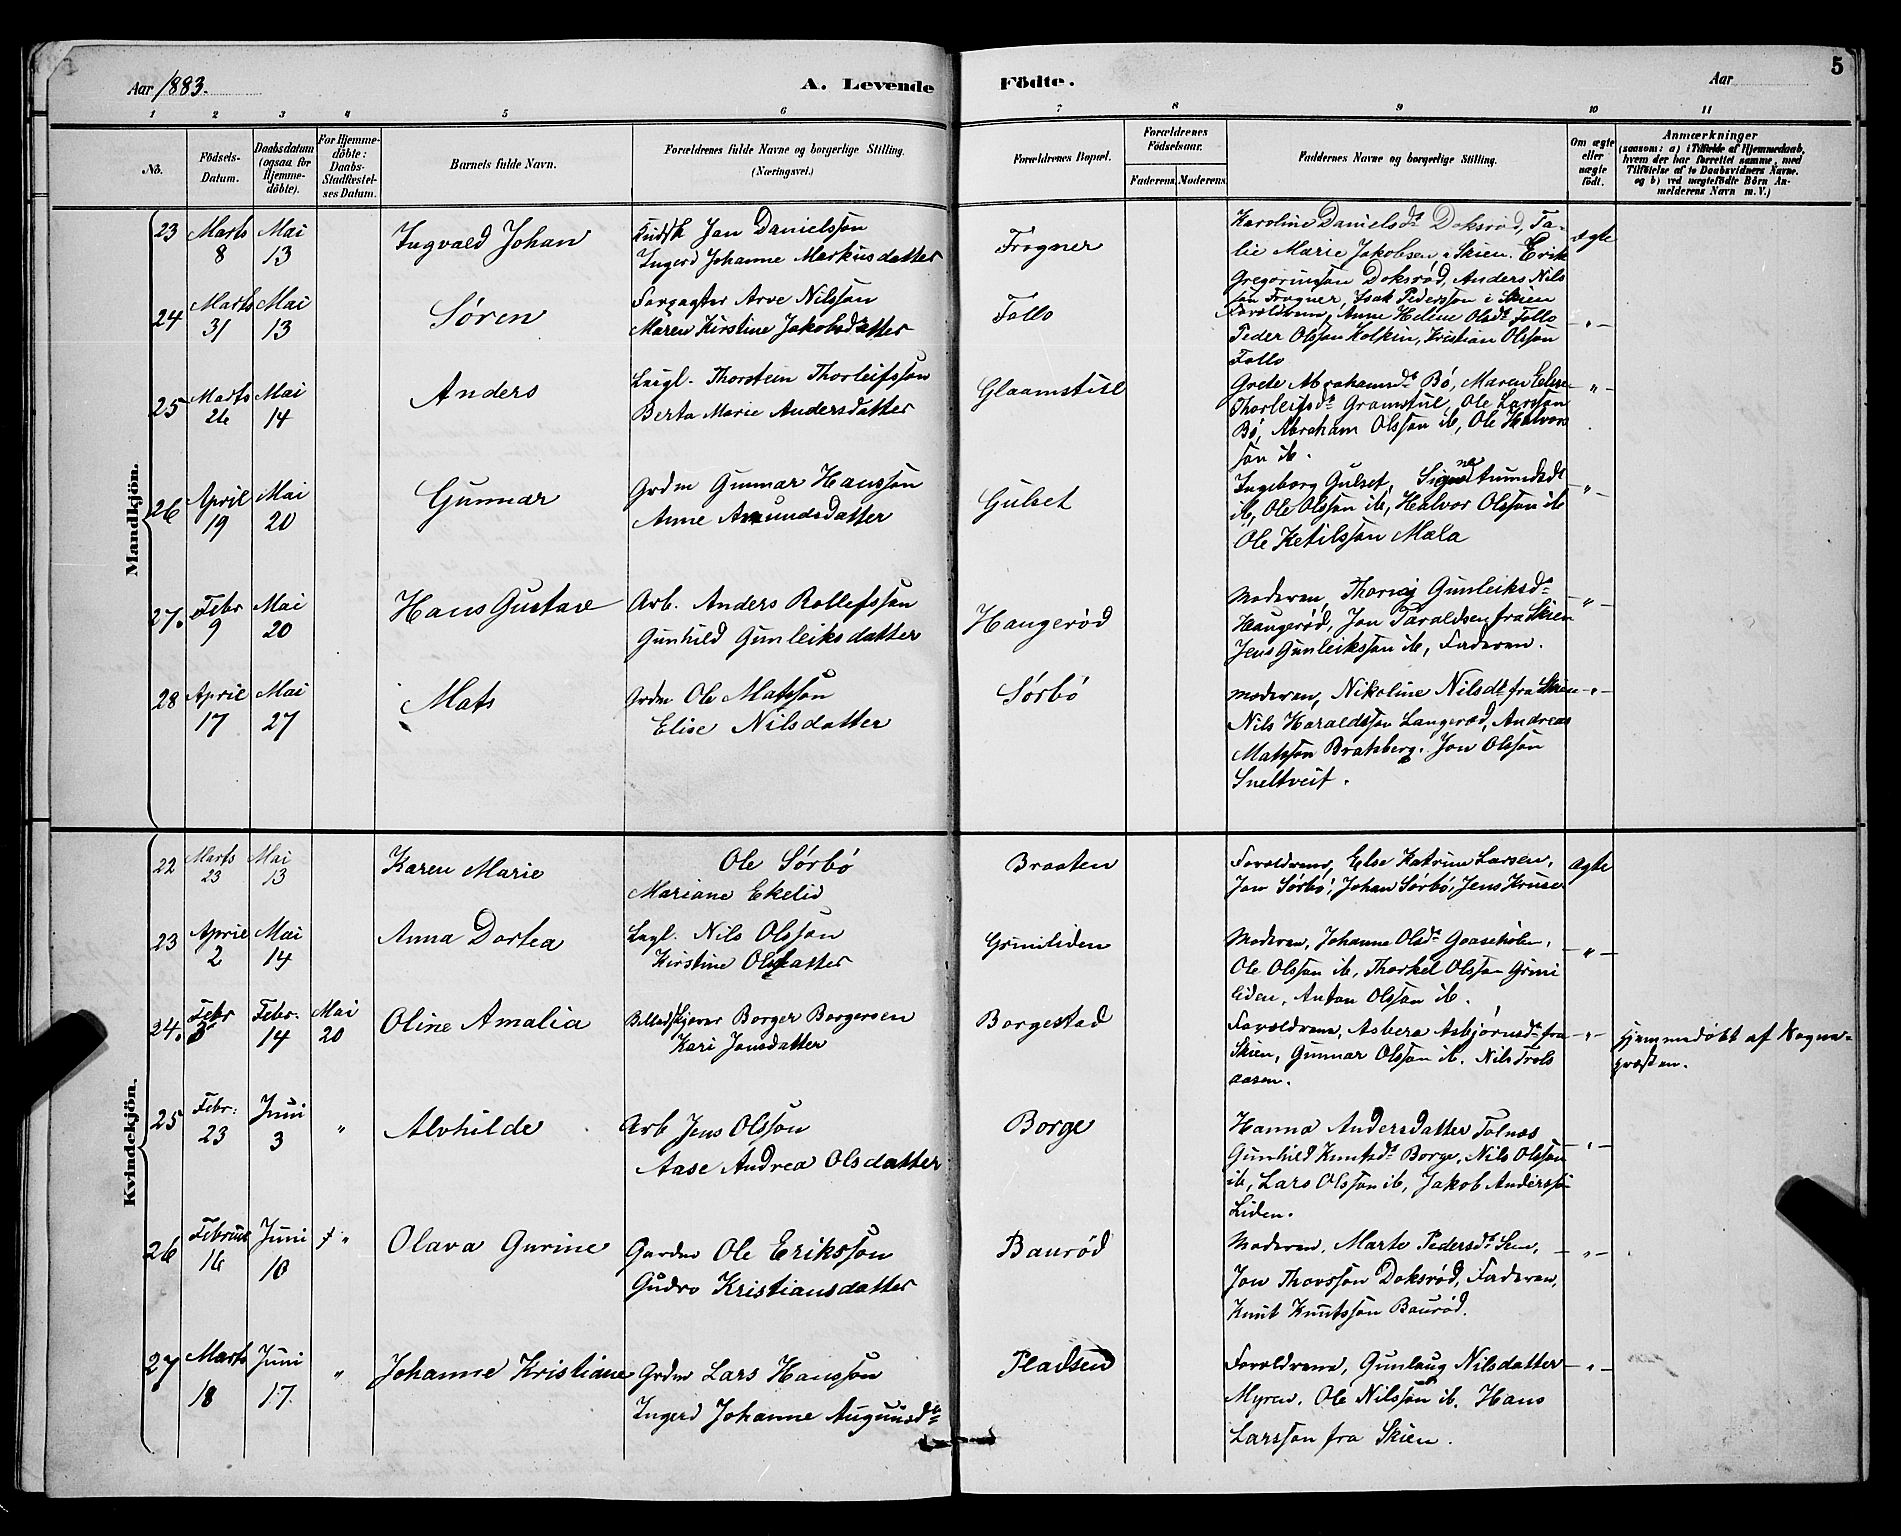 Aar 1883.
A. Levende Födte.
Aar
5
1 2 3 4 5 6 7 8 9 10 11
No.
Födsels-Datum.
Daabsdatum (ogsaa for Hjemmedöbte).
For Hjemmedöbte: Daabs-Stadfæstelses Datum.
Barnets fulde Navn.
Forældrenes fulde Navne og borgerlige Stilling. (Næringsvei.)
Forældrenes Bopæl.
Forældrenes Födselsaar.
Faderens. Moderens.
Faddernes Navne og borgerlige Stilling.
Om ægte eller uægte födt.
Anmærkninger
(saasom: a) i Tilfælde af Hjemmedaab,
hvem der har forrettet samme, med
Tilföielse af to Daabsvidners Navne.
og b) ved uægtefödte Börn An-
melderens Navn m. V.)
Mandkjön.
23 Marts 8 Mai 13 Ingvald Johan
Kudsk Jan Danielsson
Ingerd Johanne Markusdatter
Frogner
Karoline Danielsdr Doksrød, Ta-
lie Marie Jakobsen, i Skien. Erik
Gregoriusson Doksrød, Anders Nils
son Frogner, Isak Pedersson i Skien
ægte
24 Marts 31 Mai 13 Søren
Forpagter Arve Nilsson
Maren Kirstine Jakobsdatter
Follo
Forældrene, Anne Helene Olsdr Follo
Peder Olsson Kolkin, Kristian Olsson
Follo
- " -
25 Marts 26 Mai 14 Anders
Leigl. Thorstein Thorleifsson
Berta Marie Andersdatter
Glaamstul
Grete Abrahamsdr Bö, Maren Elise
Thorleifsdr Gramstul, Ole Larsson
Bö, Abraham Olsson ib, Ole Halvor
son ib.
"
26 April 19 Mai 20 Gunnar
Grdm Gunnar Hansson
Anne Amundsdatter
Gulset
Ingeborg Gulset, Signe Amundsdt
ib, Ole Olsson ib, Halvor Olsson ib
Ole Ketilsson Mæla
- " -
27. Febr 9 Mai 20 Hans Gustave
Arb. Anders Rollefsson
Gunhild Gunleiksdatter
Haugerød
Moderen, Gunleiksdr
Haugerød, Jon Taraldsen fra Skien
Jens Gunleiksson ib, Faderen.
- " -
28 April 17 Mai 27 Mats
Grdm Ole Matsson
Elise Nilsdatter
Sørbö
Moderen, Nikoline Nilsdt fra Skien
Nils Haraldsson Langerød, Andreas
Matsson Bratsberg. Jon Olsson
Sneltveit.
- " -
Kvindekjön.
22 Marts 23 Mai 13 Karen Marie
Ole Sørbö
Mariane Ekelid
Braaten
Forældrene, Else Katrine Larsen,
Jon Sørbö, Johan Sørbö, Jens Kruse
ægte
23 April 2 Mai 14 Anna Dortea
Leigl. Nils Olsson
Kirstine Olsdatter
Grimliden
Moderen, Johanne Olsdr Gaaseholm,
Ole Olsson ib, Thorkel Olsson Grim
liden, Anton Olsson ib.
- " -
24. Febr Febr. 14 Mai 20 Oline Amalia
Billedskjærer Borger Borgersen
Kari Jonsdatter
Borgestad
Forældrene, Asbera Asbjörnsdr fra
Skien, Gunnar Olsson ib. Nils Trols
aasen.
- " -
Hjemmedöbt af Sogne-
præsten.
25 Febr. 23 Juni 3 " Alvhilde
Arb Jens Olsson
Aase Andrea Olsdatter
Borge
Hanna Andersdatter Tolnæs
Gunhild Knutsdr Borge, Nils Olsson
ib, Lars Olsson ib, Jakob Andersso
Liden.
- " -
26 Februar 16 Juni 10 " Olava Gurine
Gardm Ole Eriksson
Gudro Kristiansdatter
Baurød
Moderen, Marte Pedersdt Sem,
Jon Thovsson Doksrød, Faderen,
Knut Knutsson Baurød.
- " -
27 Marts 18 Juni 17. " Johanne Kristiane
Grdm Lars Hansson
Ingerd Johanne Augunsdr
Pladsen
Forældrene, Gunlaug Nilsdatter
Myren. Ole Nilsson ib. Hans
Larsson fra Skien.
- " -